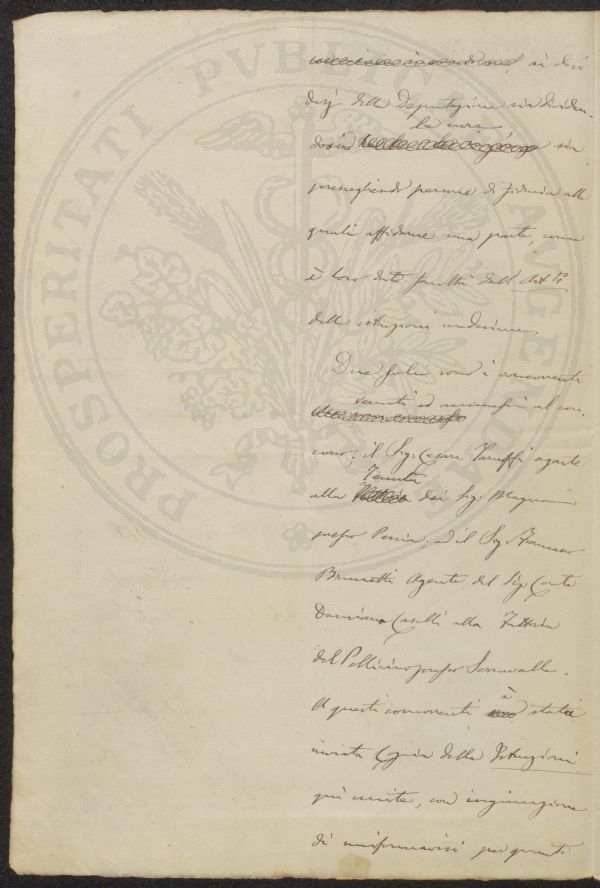 si desi
derj della Deputazione sia dividen-
dosene le cure sia
prescegliendo persone di fiducia alle
quali affidarne una parte, come
è loro dato facoltà dall'Art. 4°
delle istruzioni medesime.
Due soli sono i concorrenti
venuti ad annunciarsi al con-
corso: il Sig. Cesare Taruffi agente
alla Tenuta dei Sig. Magnani
presso ed il Sig. Francesco
Brunetti Agente del Sig. Conte
Damiano Caselli alla Fattoria
del Pellicino presso Serravalle.
A questi concorrenti è stata
inviata Copia delle Istruzioni
quì unite, con ingiunzione
di uniformarvisi per quanto
PROSPERITATI PVBLICAE AVGENDAE